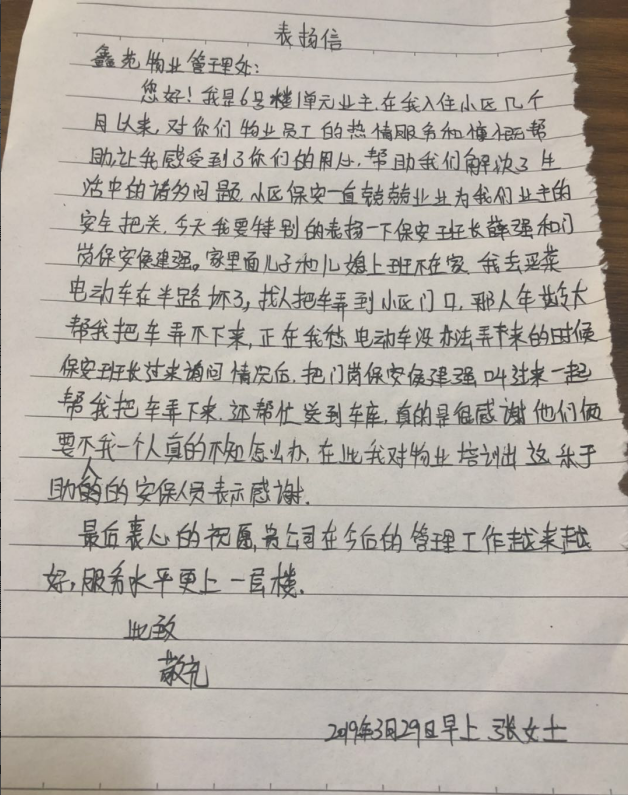 表扬信
鑫苑物业管理处:
您好!我是6号楼1单元业主,在我入住小区几个
月以来,对你们物业员工的热情服务和慷慨帮
助,让我感受到了你们的用心,帮助我们解决了生
活中的诸多问题,小区保安一直兢兢业业为我们业主的
安全把关,今天我要特别的表扬一下保安班长薛强和门
岗保安侯建强。家里面儿子和儿媳上班不在家,我去买菜
电动车在半路坏了,找人把车弄到小区门口,那人年龄大
帮我把车弄不下来,正在我愁电动车没办法弄下来的时候
保安班长过来询问情况后,把门岗保安侯建强叫过来一起
帮我把车弄下来,还帮忙送到车库,真的是很感谢他们俩
要不我一个人真的不知怎么办,在此我对物业培训出这乐于
助人的安保人员表示感谢.
最后衷心的祝愿,贵公司在今后的管理工作越来越
好,服务水平更上一层楼.
此致
敬礼
2019年3月29日早上 张女士